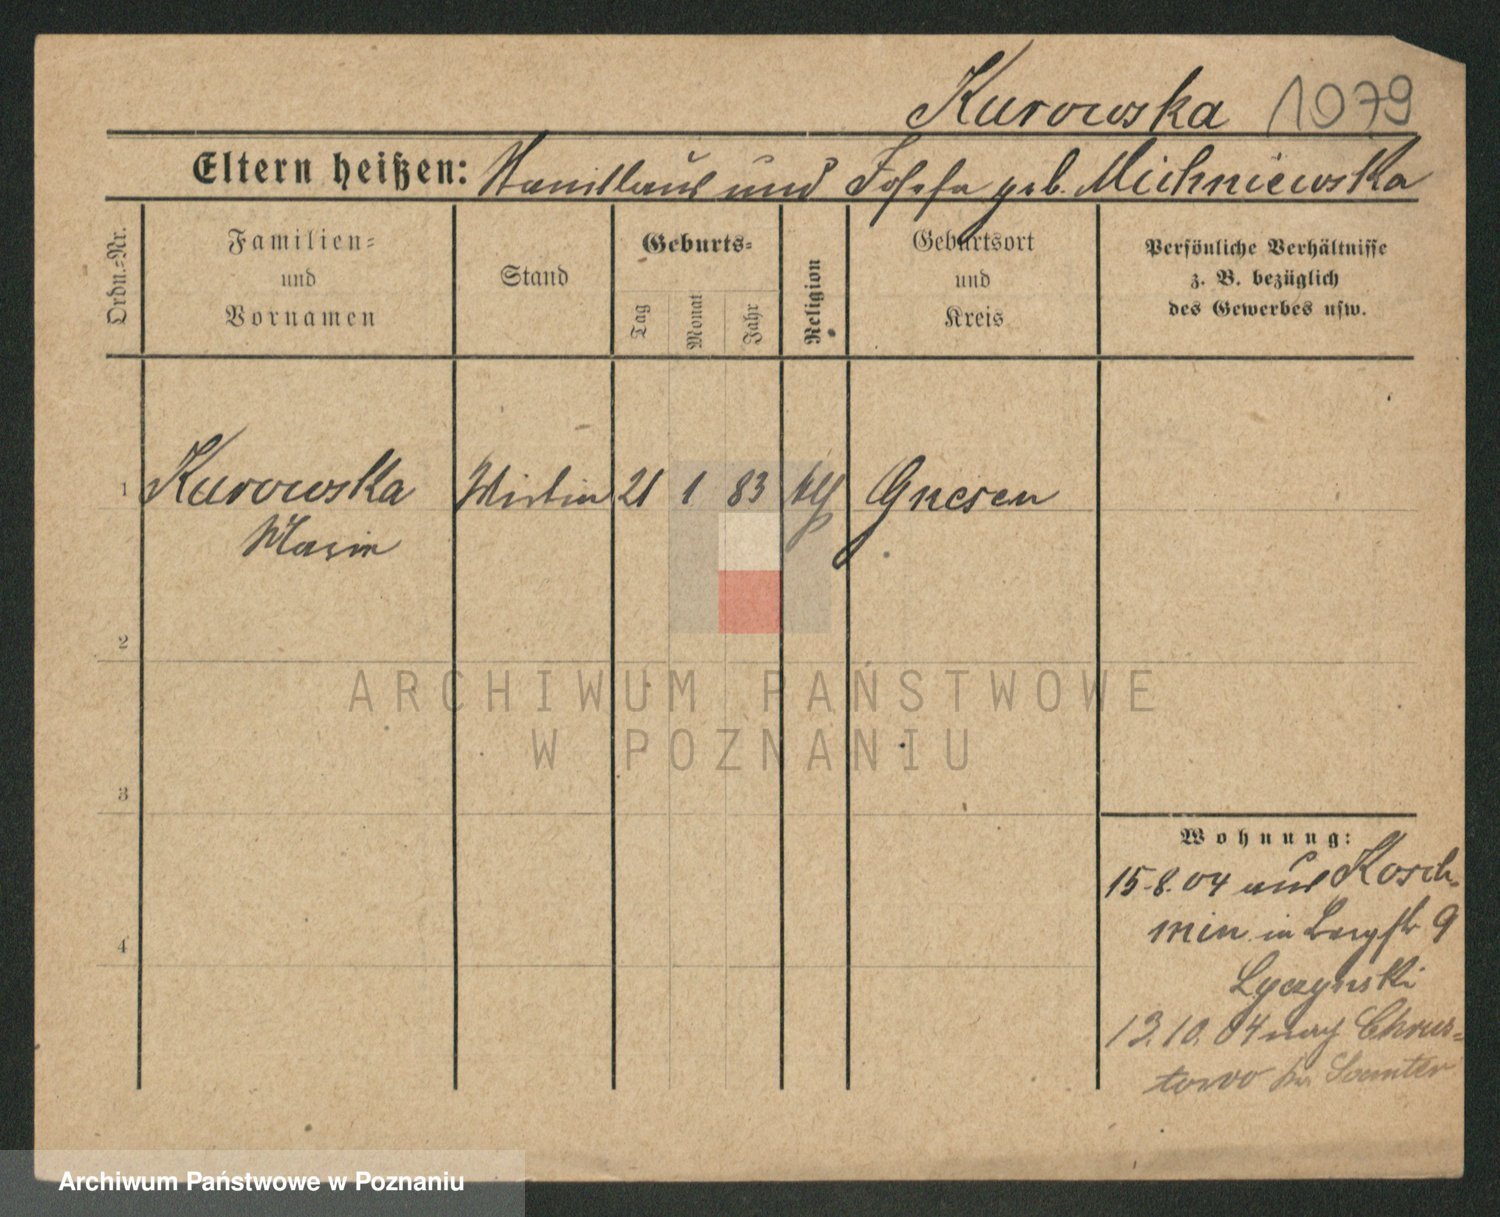 Kurowska 1079
Eltern heißen: Stanislaus und Josefa geb. Michniewska
Ordn.-Nr.
Familien-
und
Vornamen
Stand
Geburts-
Tag
Monat
Jahr
Religion
Geburtsort
und
Kreis
Persönliche Verhältnisse
z. B. bezüglich
des Gewerbes usw.
1 Kurowska Wirtin 21 1 83 Gnesen
Marie
2
3
4
ARCHIWUM PAŃSTWOWE
W POZNANIU
Wohnung:
15.8.04 aus Kosch-
min in Bergstr 9
Lyczynski
13.10.04 nach Chrus-
towo Kr. Samter
Archiwum Państwowe w Poznaniu